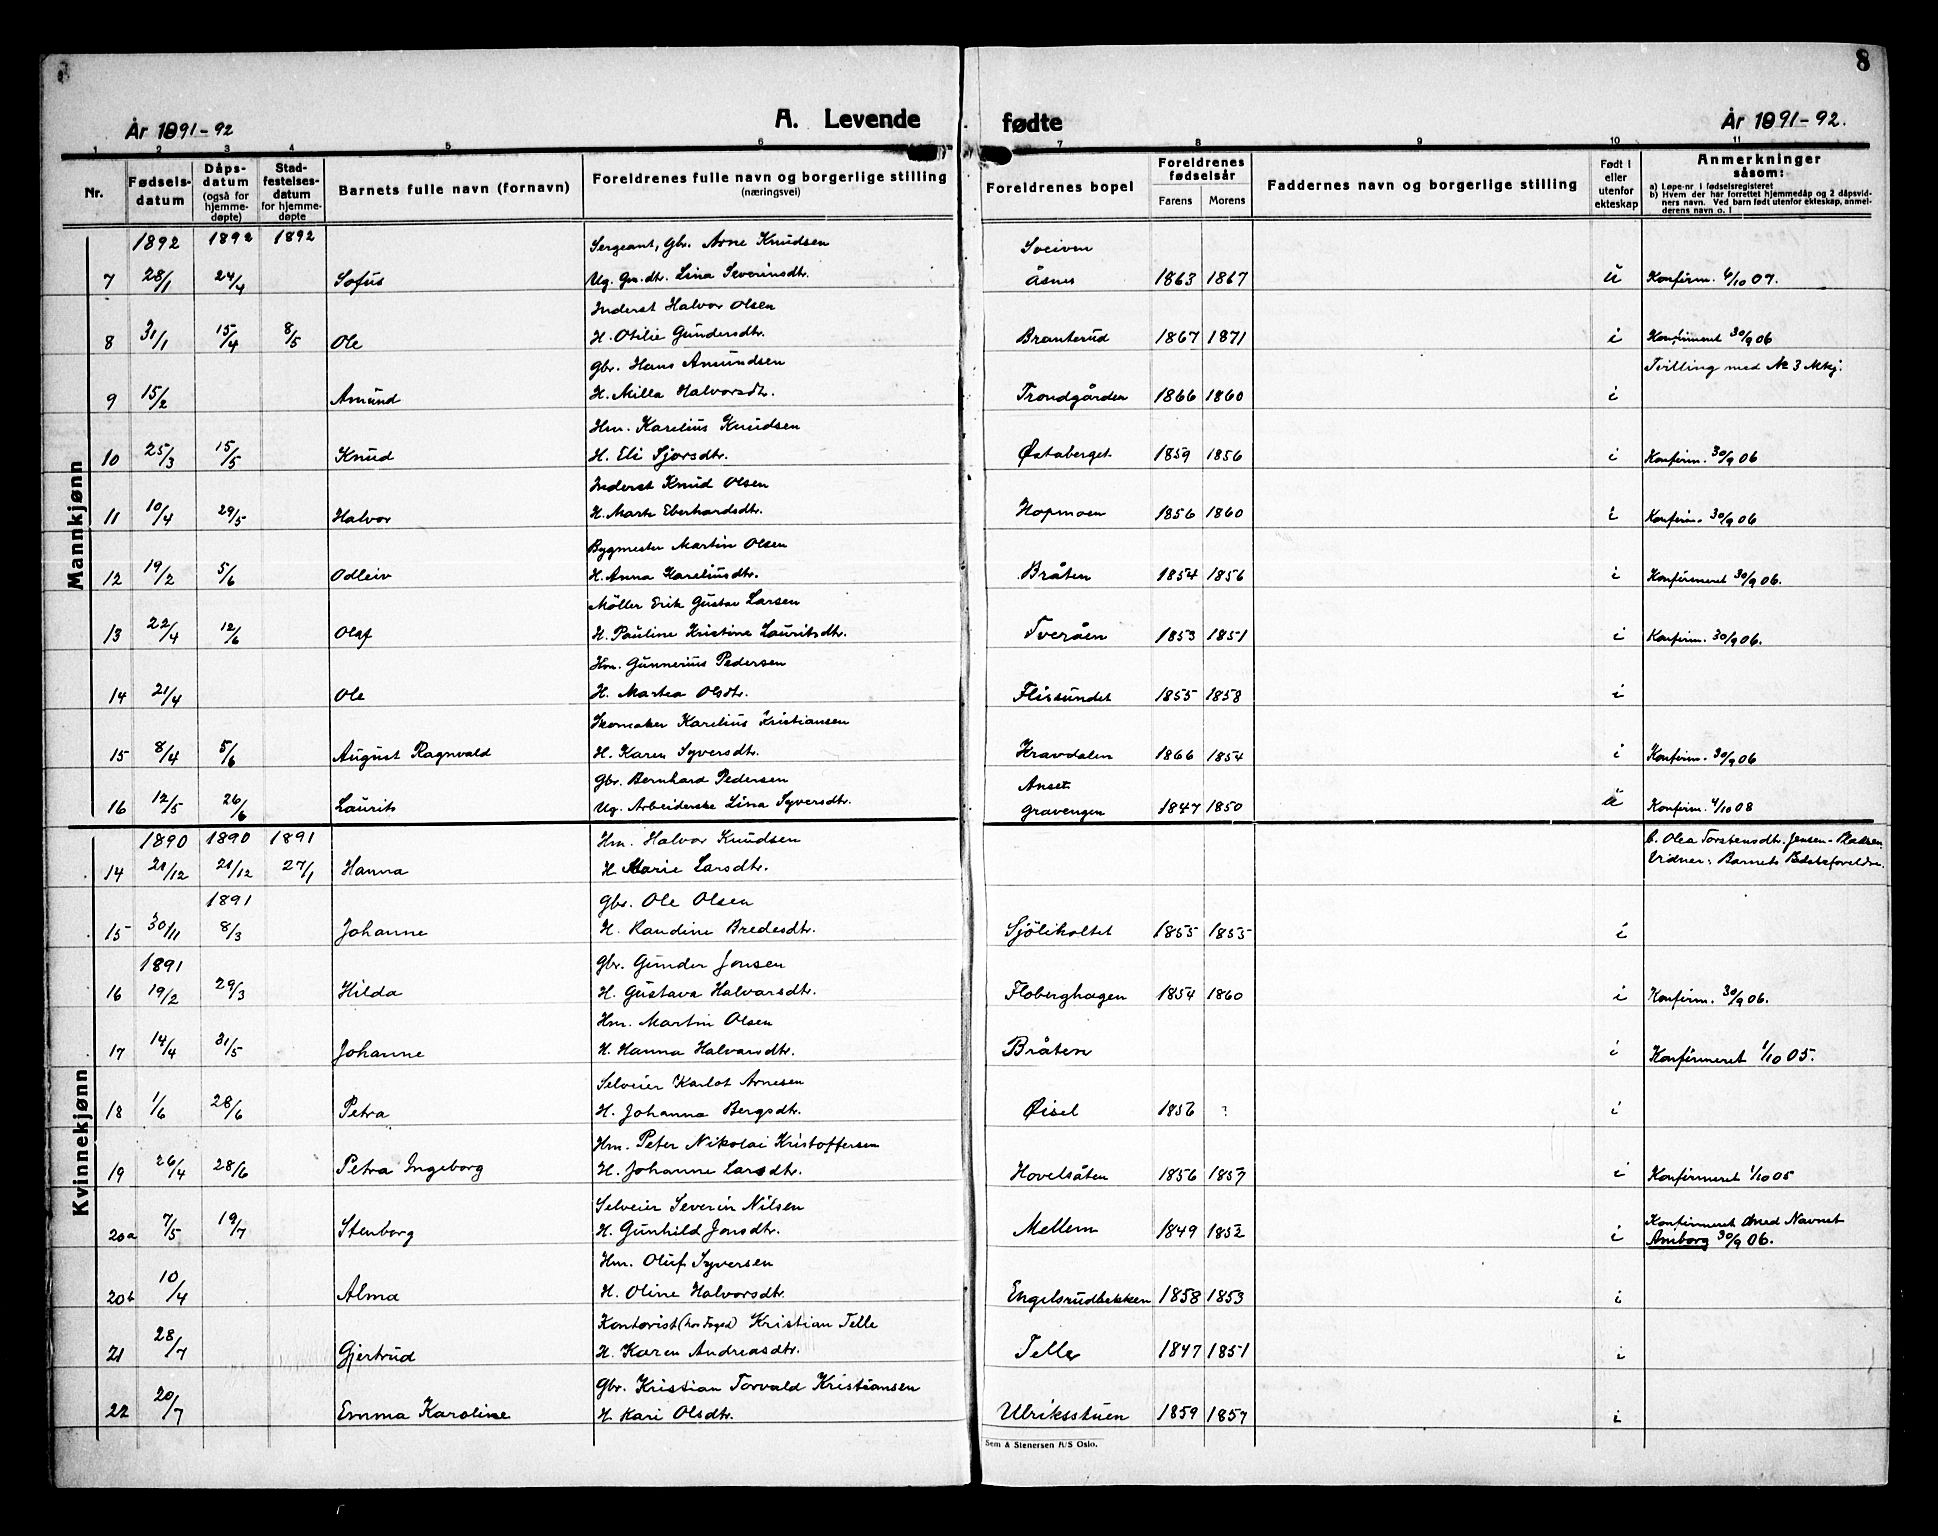 8
År 1891-92
A. Levende fødte
År 1891-92.
1 2 3 4 5 6 7 8 9 10 11
Nr.
Fødsels-datum
Dåps-datum (også for hjemme-døpte)
Stad-festelses-datum for hjemme-døpte
Barnets fulle navn (fornavn)
Foreldrenes fulle navn og borgerlige stilling (næringsvei)
Foreldrenes bopel
Foreldrenes fødselsår
Farens Morens
Faddernes navn og borgerlige stilling
Født i eller utenfor ekteskap
Anmerkninger såsom:
a) Løpe-nr i fødselsregisteret
b) Hvem der har forrettet hjemmedåp og 2 dåpsvidners navn. Ved barn født utenfor ekteskap, anmelderens navn o. l
Mannkjønn
1892 1892 1892 Sergeant, Gbr. Arne Knudsen
7 28/1 24/4 Sofus Ug. Gm.dtr. Lina Severinsdtr. Åsnes 1863 1867 u Konfirm. 6/10 07.
Inderst Halvor Olsen
8 31/1 15/4 8/5 Ole H. Otilie Gundersdtr. Branterud 1867 1871 i Konfirmeret 30/9 06
Gbr. Hans Amundsen Tvilling med No 3 Mkj.
9 15/2 Amund H. Milla Halvorsdtr. Trondgården 1866 1860 i
Hm. Karelius Knudsen
10 25/3 15/5 Knud H. Eli Sjorsdtr. Østaberget 1859 1856 i Konfirm. 30/9 06
Inderst Knud Olsen
11 10/4 29/5 Halvor H. Marte Eberhardsdtr. Hopmoen 1856 1860 i Konfirm. 30/9 06
Bygmester Martin Olsen
12 19/2 5/6 Odleiv H. Anna Kareliusdtr. Bråten 1854 1856 i Konfirmeret 30/9 06.
Möller Erik Gustav Larsen
13 22/4 12/6 Olaf H. Pauline Kristine Lauritsdtr. Tveråen 1853 1851 i Konfirm. 30/9 06.
Hm. Gunnerius Pedersen
14 21/4 Ole H. Martea Olsdtr. Flissundet 1855 1858 i
Skomaker Karelius Kristiansen
15 8/4 5/6 August Ragnvald H. Karen Syversdtr. Kravdalen 1866 1854 i Konfirm. 30/9 06
Gbr. Bernhard Pedersen Anset
16 12/5 26/6 Laurits Ug. Arbeiderske Lina Syversdtr. Gravengen 1847 1850 u Konfirm. 4/10 08
Kvinnekjønn
1890 1890 1891 Hm. Halvor Knudsen b. Olea Torstensdtr. Jensen-
14 21/12 21/12 27/1 Hanna H. Marie Larsdtr. Vidner: Barnets Bedsteforeldre.
1891 Gbr. Ole Olsen
15 30/11 8/3 Johanne H. Randine Bredesdtr. Sjöliholtet 1855 1855 i
1891 Gbr. Gunder Jonsen
16 19/2 29/3 Hilda H. Gustava Halvorsdtr. Floberghagen 1854 1860 i Konfirm. 30/9 06.
Hm. Martin Olsen
17 14/4 31/5 Johanne H. Hanna Halvorsdtr. Bråten i Konfirmeret 1/10 05.
Selveier Karlot Arnesen
18 1/6 28/6 Petra H. Johanna Bergsdtr. Øisel 1856 ? i
Hm. Peter Nikolai Kristoffersen
19 26/4 28/6 Petra Ingeborg H. Johanne Larsdtr. Hovelsåten 1856 1857 i Konfirmeret 1/10 05
Selveier Severin Nilsen Konfirmeret med Navnet
20a 7/5 19/7 Stenborg H. Gunhild Jonsdtr. Mellem 1849 1852 i Arnborg 30/9 06.
Hm. Oluf Syversen
20b 10/4 Alma H. Oline Halvorsdtr. Engelsrudbekken 1858 1853 i
Kontorist (hos Foged) Kristian Telle
21 28/7 Gjertrud H. Karen Andreasdtr. Telle 1847 1851 i
Gbr. Kristian Torvald Kristiansen
22 20/7 Emma Karoline H. Kari Olsdtr. Ulriksstuen 1859 1857 i
Sem & Stenersen A/S Oslo.